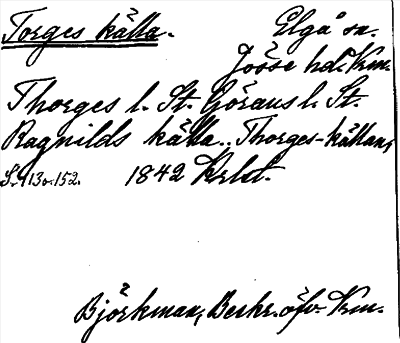 Torges källa.
Elgå sn.
Jösse hd. Vrm.
Thorges l. St. Görans l. St.
Ragnilds källa., Thorges-källan,
S. 113 o. 152. 1842 Krlst.
Björkman, Beskr. öfv. Vrm.